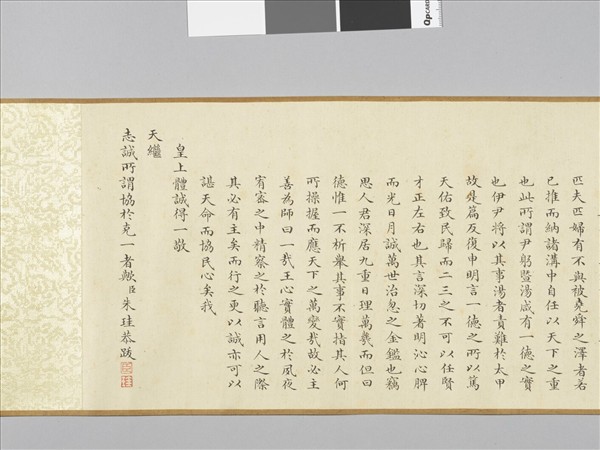 匹夫匹婦有不與被堯舜之澤者若
已推而納諸溝中自任以天下之重
也此所謂尹躬暨湯咸有一德之實
也伊尹將以其事湯者責難於太甲
故是篇反復申明言一德之所以篤
天佑致民歸而二三之不可以任賢
才正左右也其言深切著明沁心脾
而光日月誠萬世治忽之金鑑也竊
思人君深居九重日理萬幾而但曰
德惟一不析舉其事不實指其人何
所操握而應天下之萬變哉故必主
善為師曰一哉王心實體之於夙夜
宥密之中精察之於聽言用人之際
其必有主矣而行之更以誠亦可以
諶天命而協民心矣我
皇上體誠得一敬
天繼
志誠所謂協於克一者歟臣朱珪恭跋
QPCARD